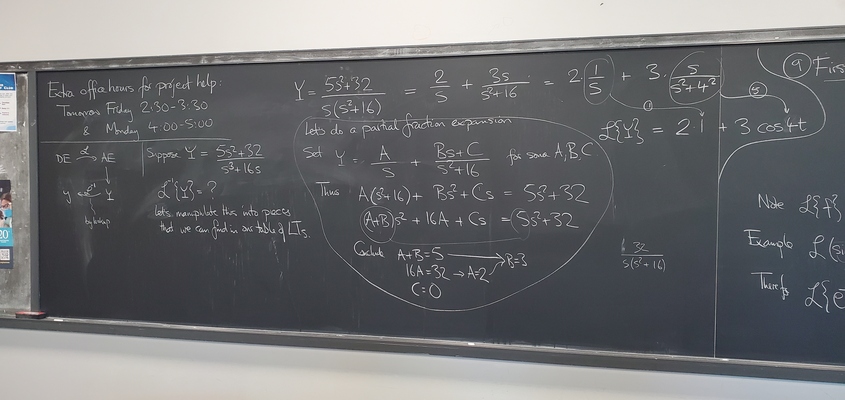 Extra office hours for project help:
Tomorrow Friday 2:30-3:30
& Monday 4:00-5:00
DE ℒ→ AE
↓
y ←ℒ⁻¹ Y
by lookup
Suppose Y = (5s²+32)/(s³+16s)
ℒ⁻¹{Y} = ?
Let's manipulate this into pieces
that we can find in our table of LTs.
Y = (5s²+32)/(s(s²+16)) = 2/s + 3s/(s²+16) = 2·1/s + 3·s/(s²+4²)
Let's do a partial fraction expansion
Set Y = A/s + (Bs+C)/(s²+16) for some A,B,C
Thus A(s²+16) + Bs² + Cs = 5s²+32
(A+B)s² + 16A + Cs = 5s²+32
Conclude A+B=5 → B=3
16A=32 → A=2
C=0
ℒ{Y} = 2·1 + 3 cos4t
32/(s(s²+16))
⑨ First
Note ℒ{f}
Example ℒ(si
Therefo
ℒ{e